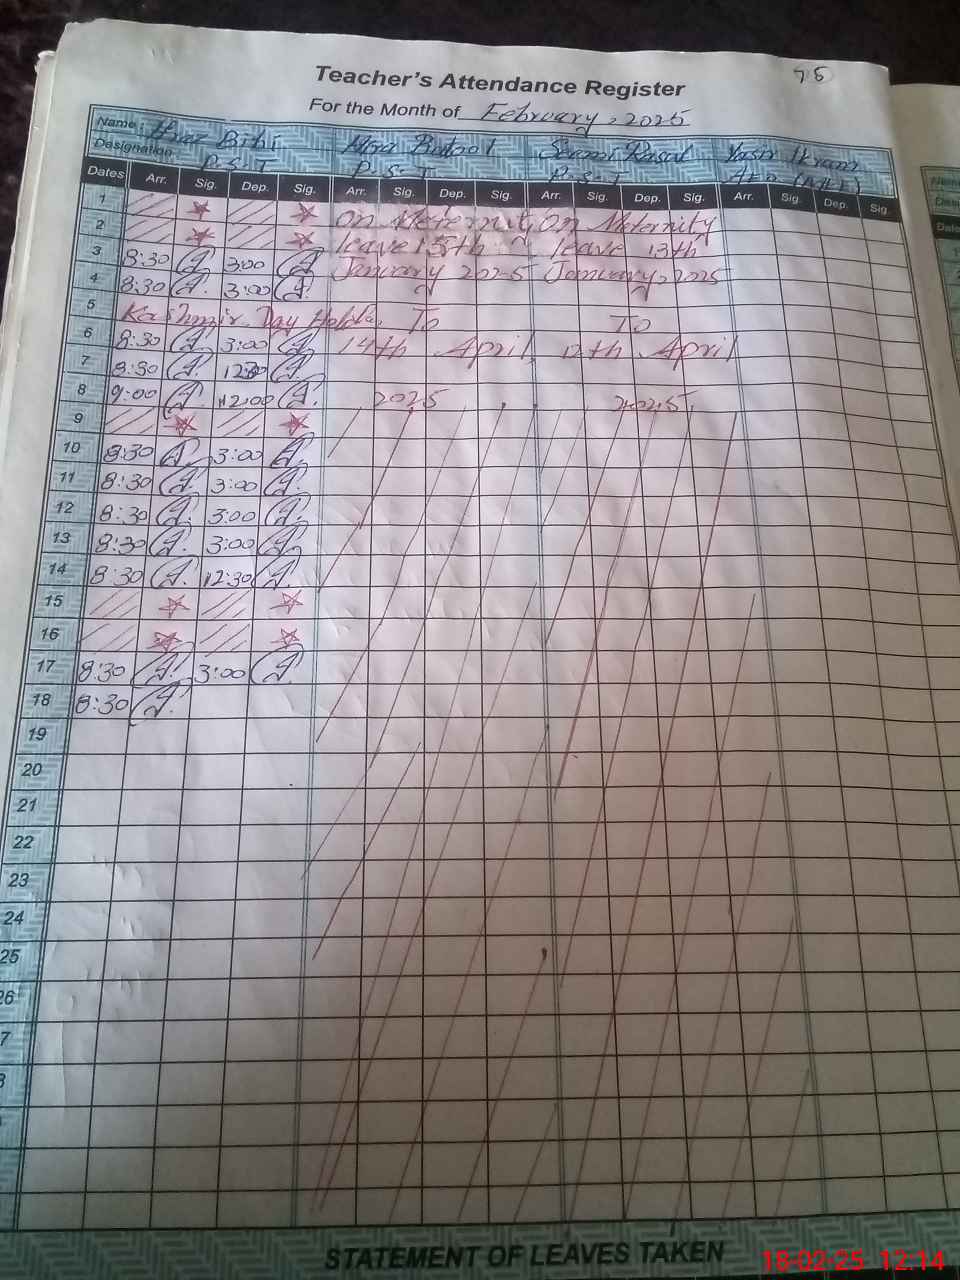 75
Teacher's Attendance Register
For the Month of February, 2025
Name Bibi Batool Yasir Ikram
Designation P.S.T P.S.T P.S.T
Dates Arr. Sig. Dep. Sig. Arr. Sig. Dep. Sig. Arr. Sig. Dep. Sig. Arr. Sig. Dep. Sig.
1 On Meternity On Meternity
2 leave 15th leave 13th
3 8:30 3:00 January 2025 January, 2025
4 8:30 3:00
5 Kashmir Day Holiday To To
6 8:30 3:00 14th April 12th April
7 8:30 12:30
8 9:00 12:00 2025 2025
9
10 8:30 3:00
11 8:30 3:00
12 8:30 3:00
13 8:30 3:00
14 8:30 12:30
15
16
17 8:30 3:00
18 8:30
19
20
21
22
23
24
25
26
7
STATEMENT OF LEAVES TAKEN
18-02-25 12:14